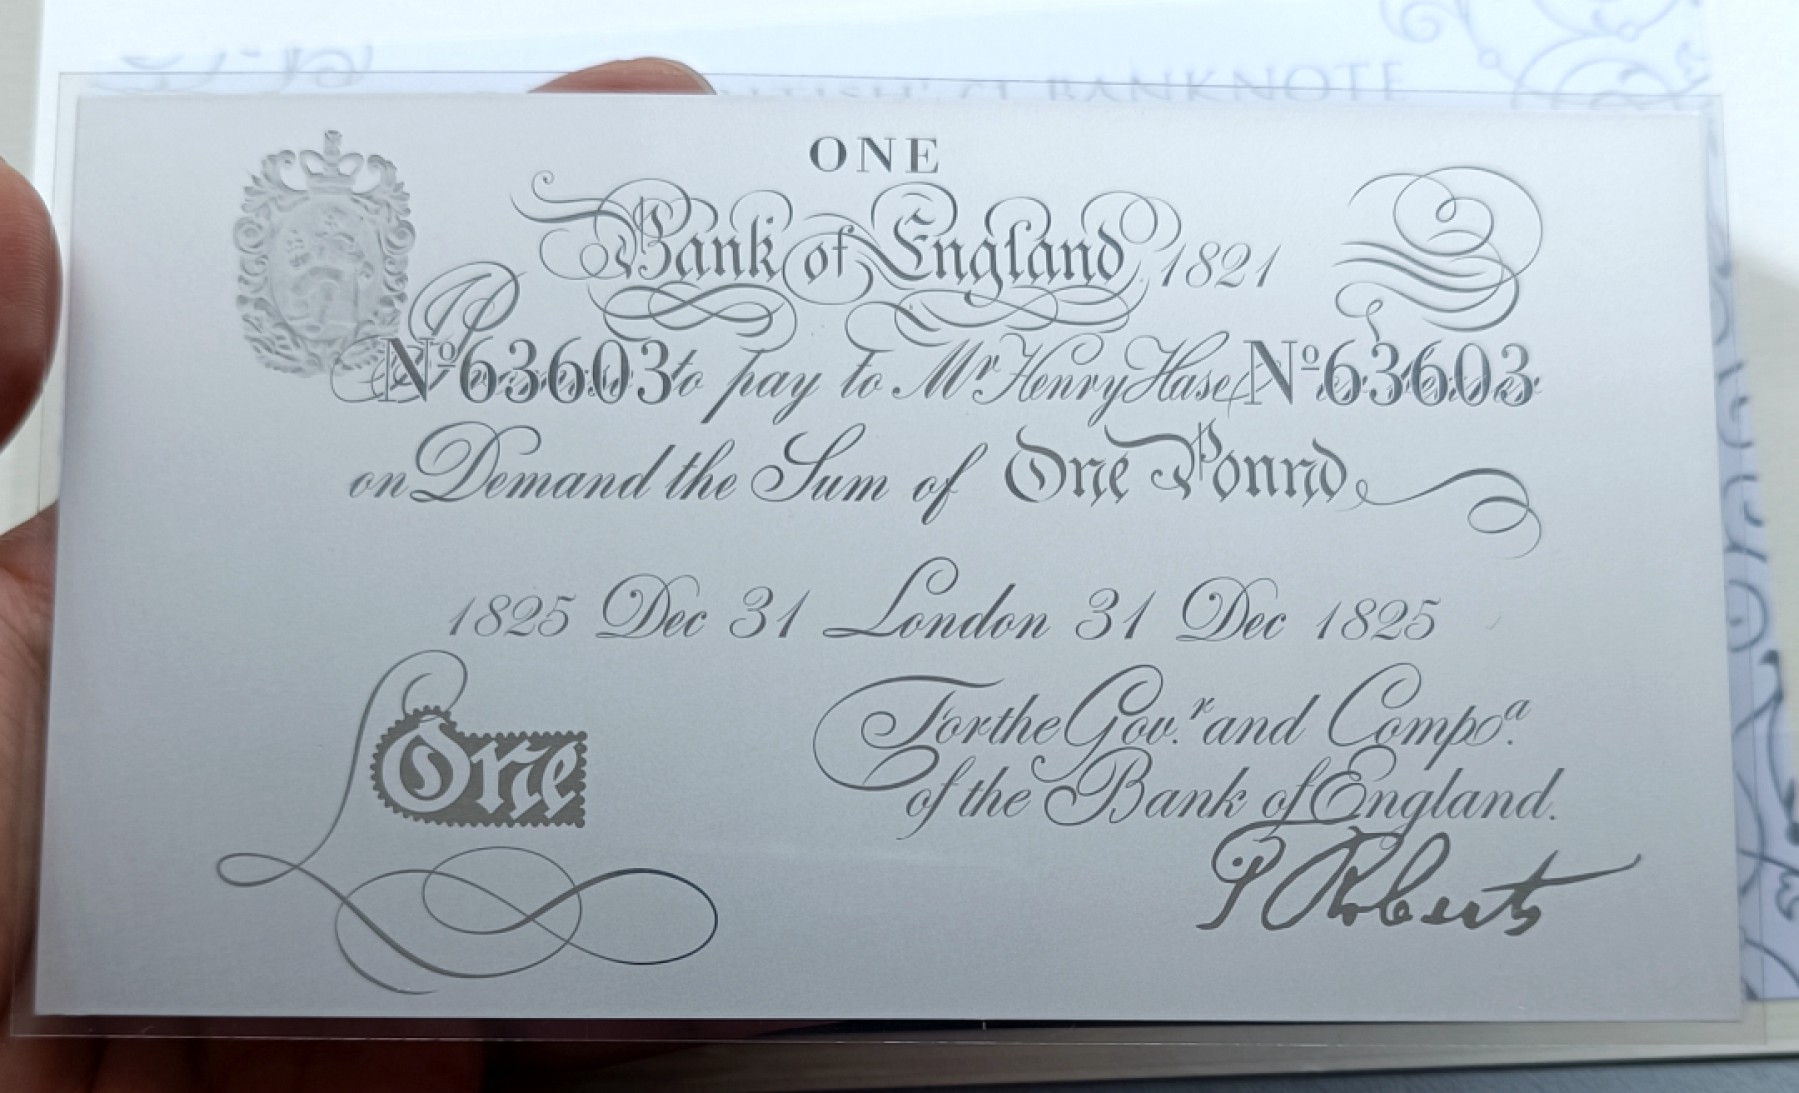 BANKNOTE
ONE
Bank of England 1821
Nº 63603 to pay to Mr Henry Hase Nº 63603
on Demand the Sum of One Pound
1825 Dec 31 London 31 Dec 1825
For the Gov.r and Compa.
of the Bank of England.
One
P Roberts